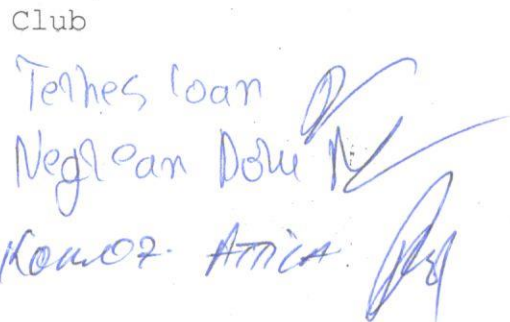 Club
Terhes Ioan
Neglean Doru
Komoz. Attila